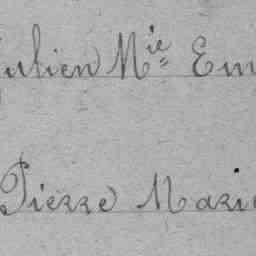 Julien M^ie Em
Pierre Marie